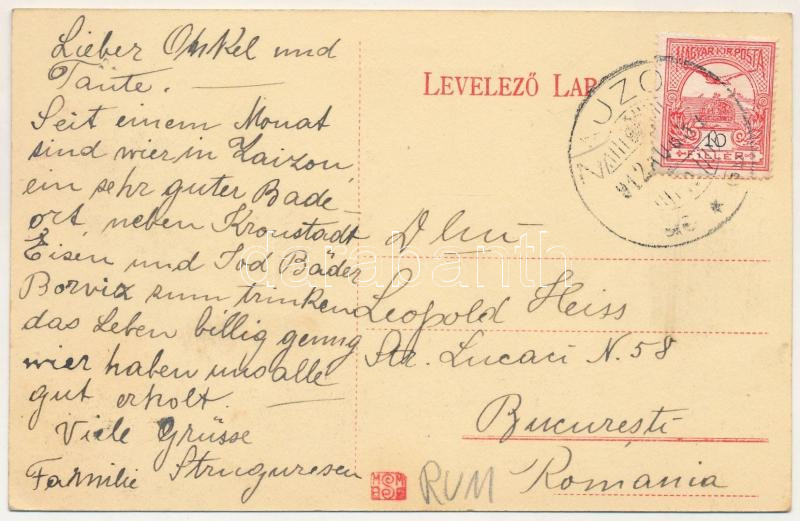 Lieber Onkel und
Tante. —
Seit einem Monat
sind wier in Zaizon,
ein sehr guter Bade-
ort, neben Kronstadt
Eisen und Jod Bäder
Borviz zum trinken
das Leben billig genug
wier haben uns alle
gut erholt. —
Viele Grüsse
Familie Strugurescu
LEVELEZŐ LAP
MAGYAR KIR. POSTA
10
FILLÉR
912 AUG
Dlui
Leopold Heiss
Str. Lucaci N. 58
Bucureşti
Romania
RUM
darabanth